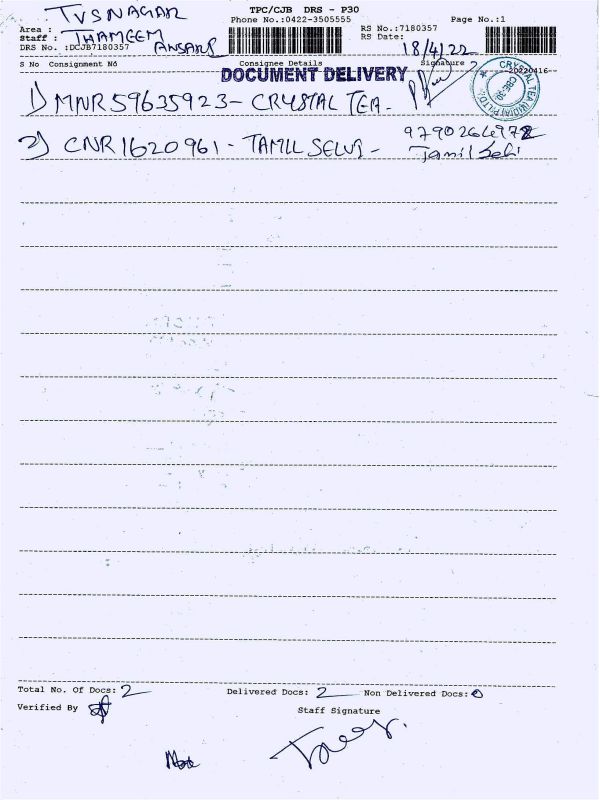 TPC/CJB DRS - P30
Phone No.:0422-3505555 Page No.:1
Area : TVSNAGAR
Staff : THAMEEM ANSARI
DRS No. :DCJB7180357
RS No.:7180357
RS Date: 18/4/22
S No Consignment No Consignee Details Signature
DOCUMENT DELIVERY
20220416
CRYSTAL TEA (INDIA) P. LTD.
CBE-30
1) MNR59635923 - CRYSTAL TEA -
2) CNR1620961 - TAMIL SELVI - 9790266972
Total No. Of Docs: 2 Delivered Docs: 2 Non Delivered Docs: 0
Verified By Staff Signature